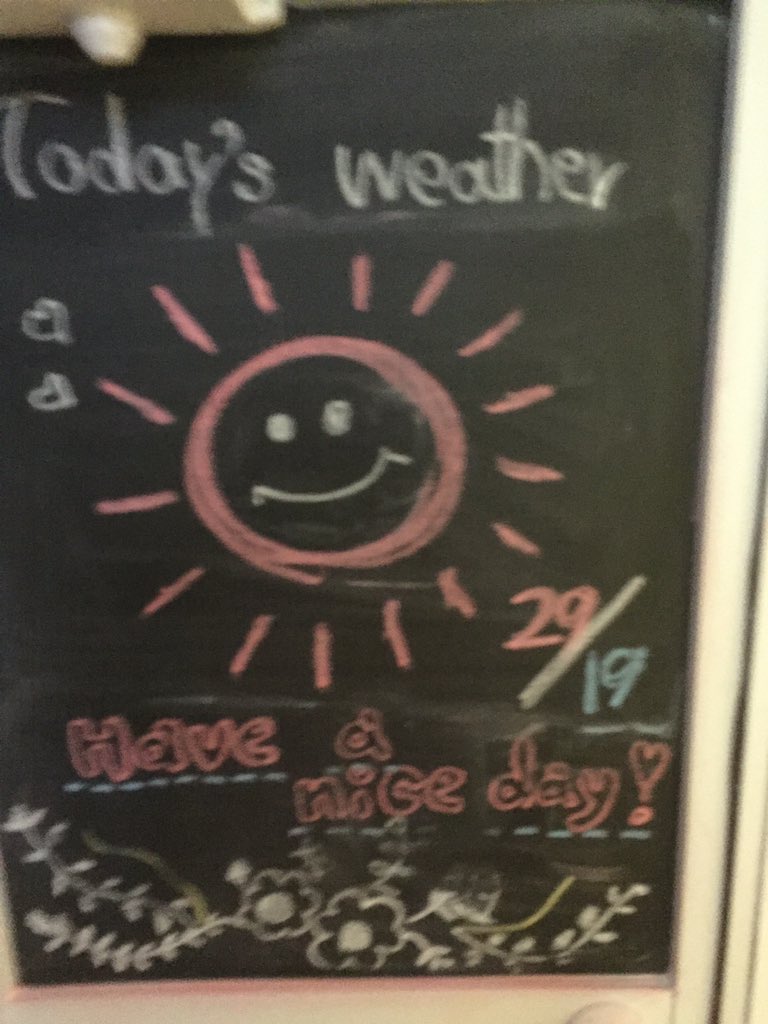 Today's weather
a
a
29/19
Have a
nice day!